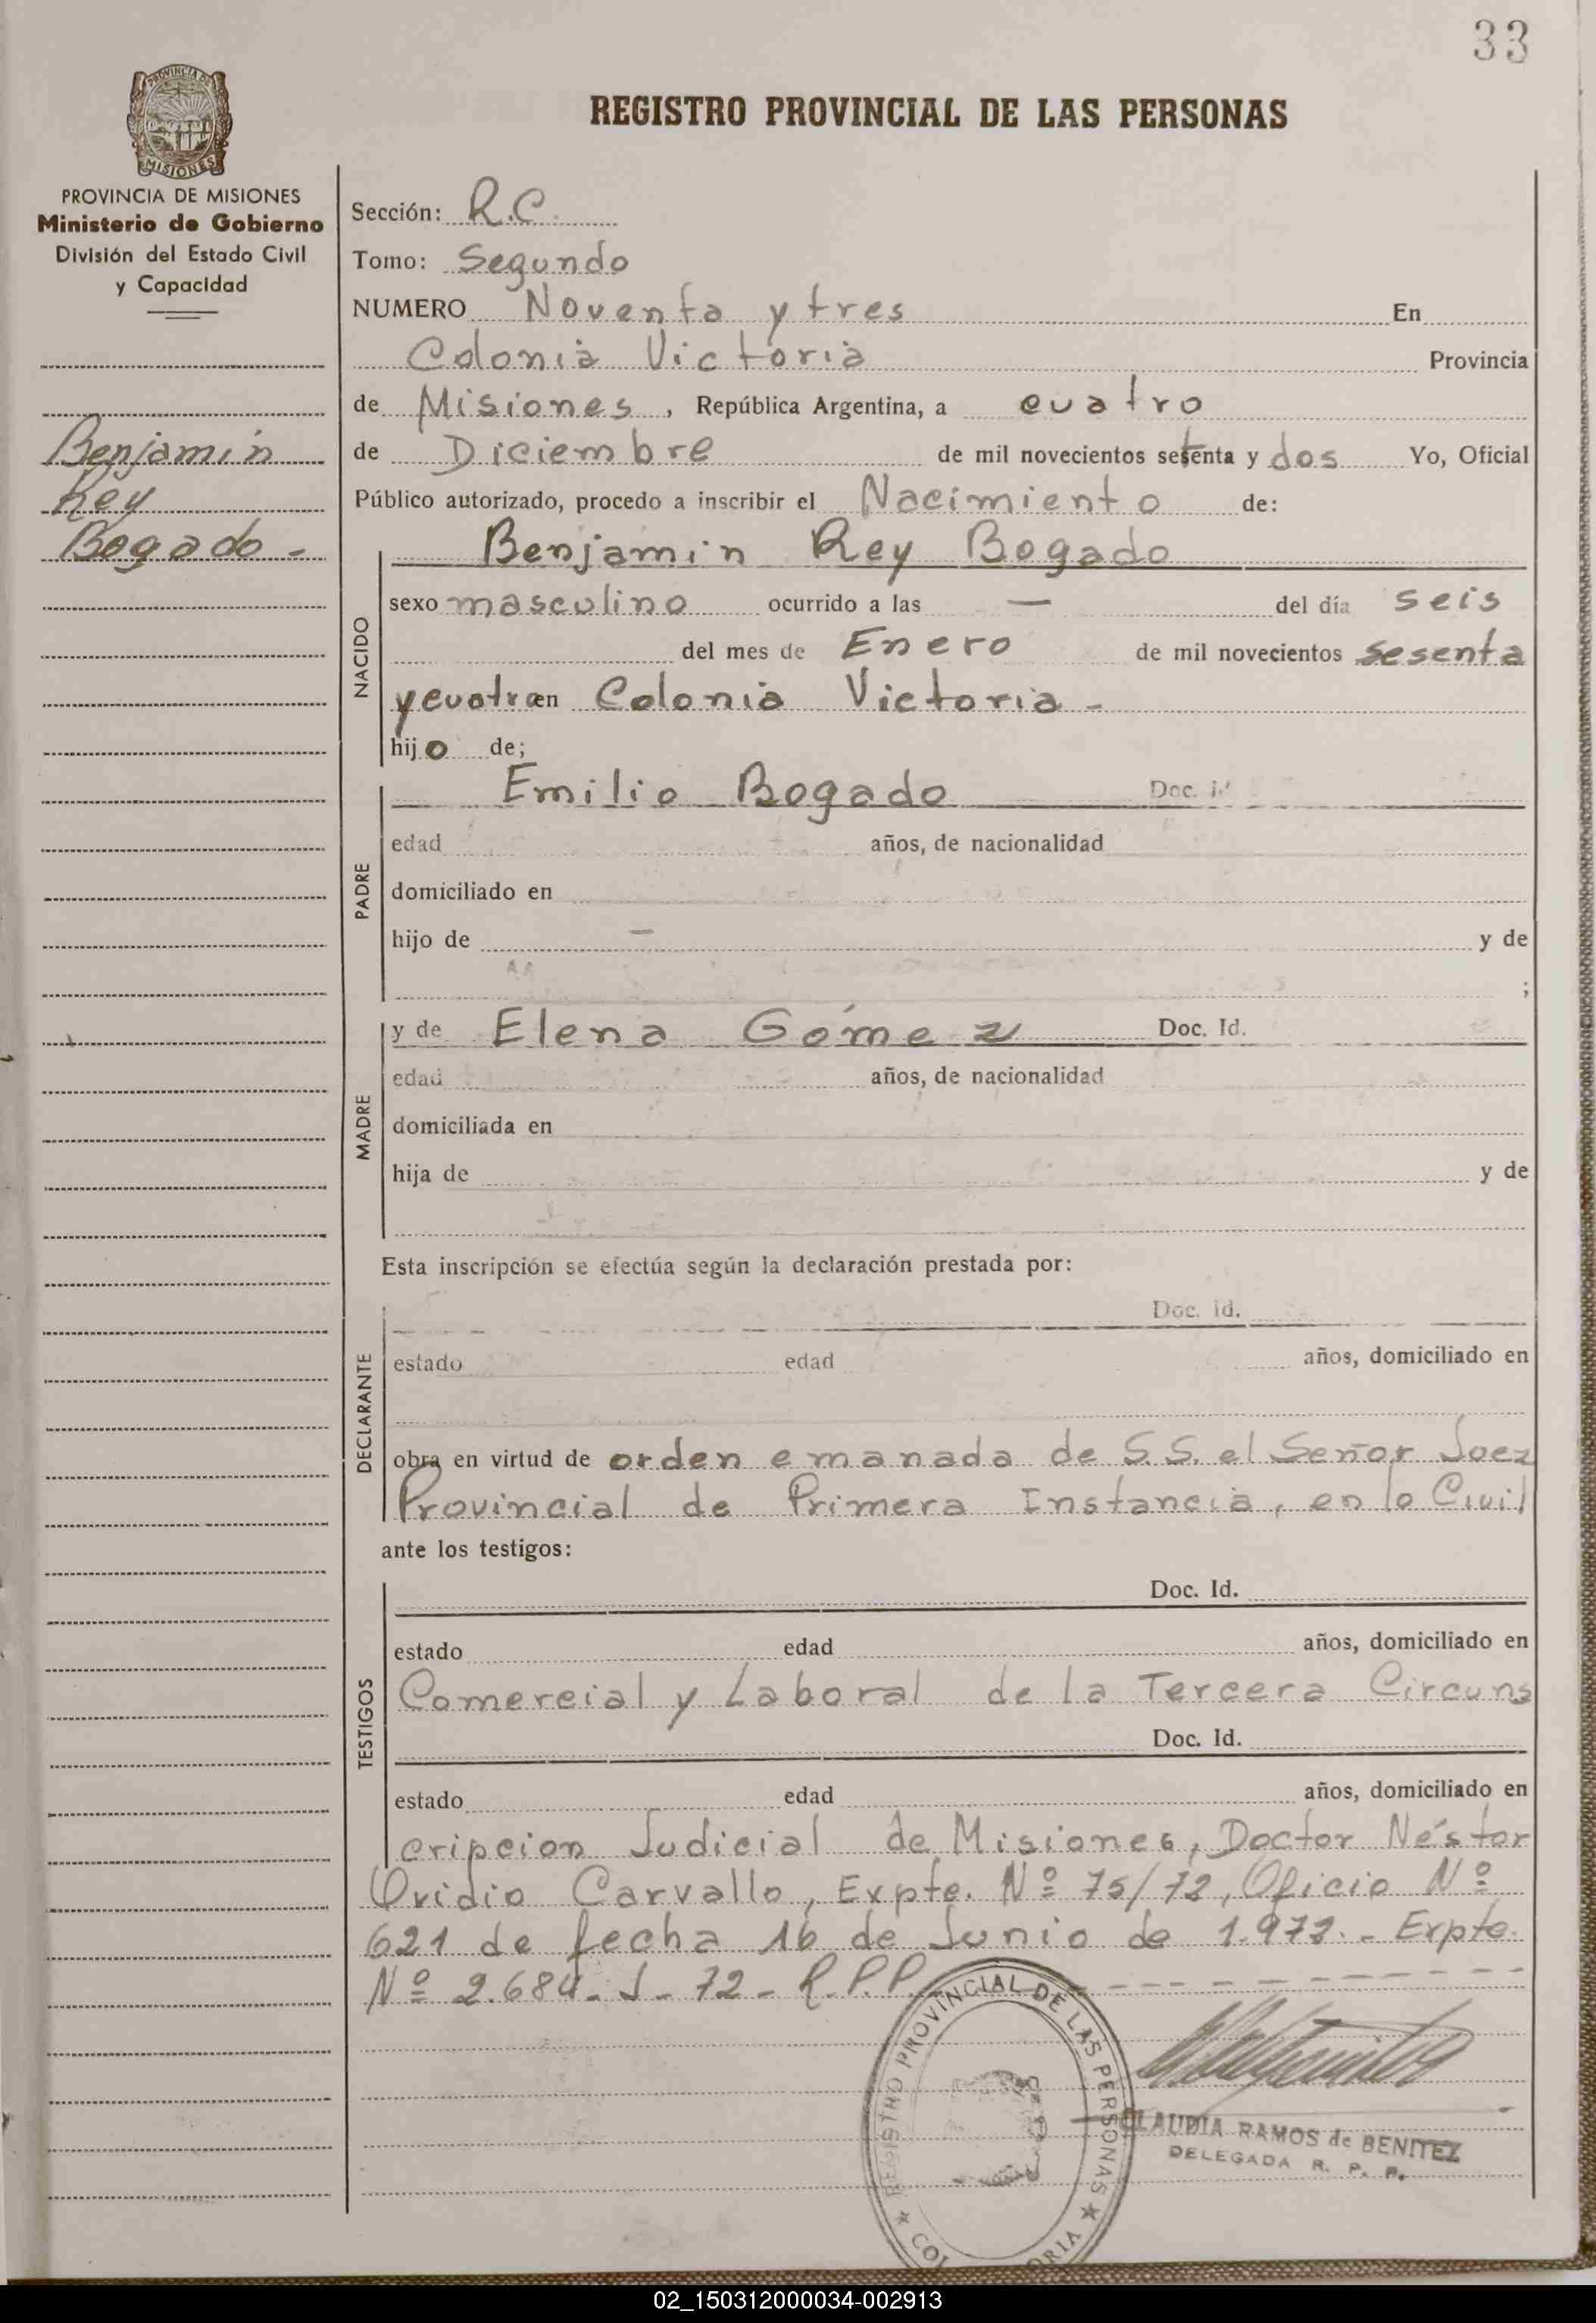 33
PROVINCIA DE
MISIONES
REGISTRO PROVINCIAL DE LAS PERSONAS
PROVINCIA DE MISIONES
Ministerio de Gobierno
División del Estado Civil
y Capacidad
Benjamín
Rey
Bogado -
Sección: R.C.
Tomo: Segundo
NUMERO Noventa y tres En
Colonia Victoria Provincia
de Misiones, República Argentina, a cuatro
de Diciembre de mil novecientos setenta y dos Yo, Oficial
Público autorizado, procedo a inscribir el Nacimiento de:
Benjamín Rey Bogado
NACIDO
sexo masculino ocurrido a las — del día seis
del mes de Enero de mil novecientos sesenta
y cuatro en Colonia Victoria -
hijo de;
PADRE
Emilio Bogado Doc. Id
edad años, de nacionalidad
domiciliado en
hijo de — y de
;
MADRE
y de Elena Gómez Doc. Id.
edad años, de nacionalidad
domiciliada en
hija de y de
Esta inscripción se efectúa según la declaración prestada por:
DECLARANTE
Doc. Id.
estado edad años, domiciliado en
obra en virtud de orden emanada de S.S. el Señor Juez
Provincial de Primera Instancia, en lo Civil
ante los testigos:
TESTIGOS
Doc. Id.
estado edad años, domiciliado en
Comercial y Laboral de la Tercera Circuns
Doc. Id.
estado edad años, domiciliado en
cripcion Judicial de Misiones, Doctor Néstor
Ovidio Carvallo, Expte. Nº 75/72, Oficio Nº
621 de fecha 16 de Junio de 1.972.- Expte.
Nº 2.684- J- 72- R.P.P.
REGISTRO PROVINCIAL DE LAS PERSONAS
CLAUDIA RAMOS de BENITEZ
DELEGADA R. P. P.
02_150312000034-002913